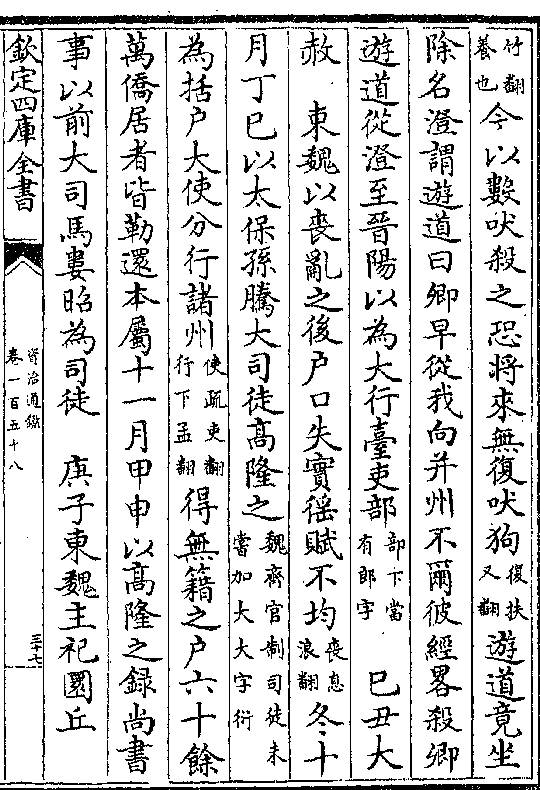 竹翻養也今以數吠殺之恐將來無復吠狗復扶又翻遊道竟坐
除名澄謂遊道曰卿早從我向并州不爾彼經畧殺卿
遊道從澄至晉陽以為大行臺吏部部下當有郎字 己丑大
赦 東魏以喪亂之後户口失實徭賦不均喪息浪翻冬十
月丁巳以太保孫騰大司徒髙隆之魏齊官制司徒未嘗加大大字衍
為括户大使分行諸州使疏吏翻行下孟翻得無籍之户六十餘
萬僑居者皆勒還本屬十一月甲申以髙隆之録尚書
事以前大司馬婁昭為司徒 庚子東魏主祀圜丘
欽定四庫全書
資治通鑑
卷一百五十八
三十七